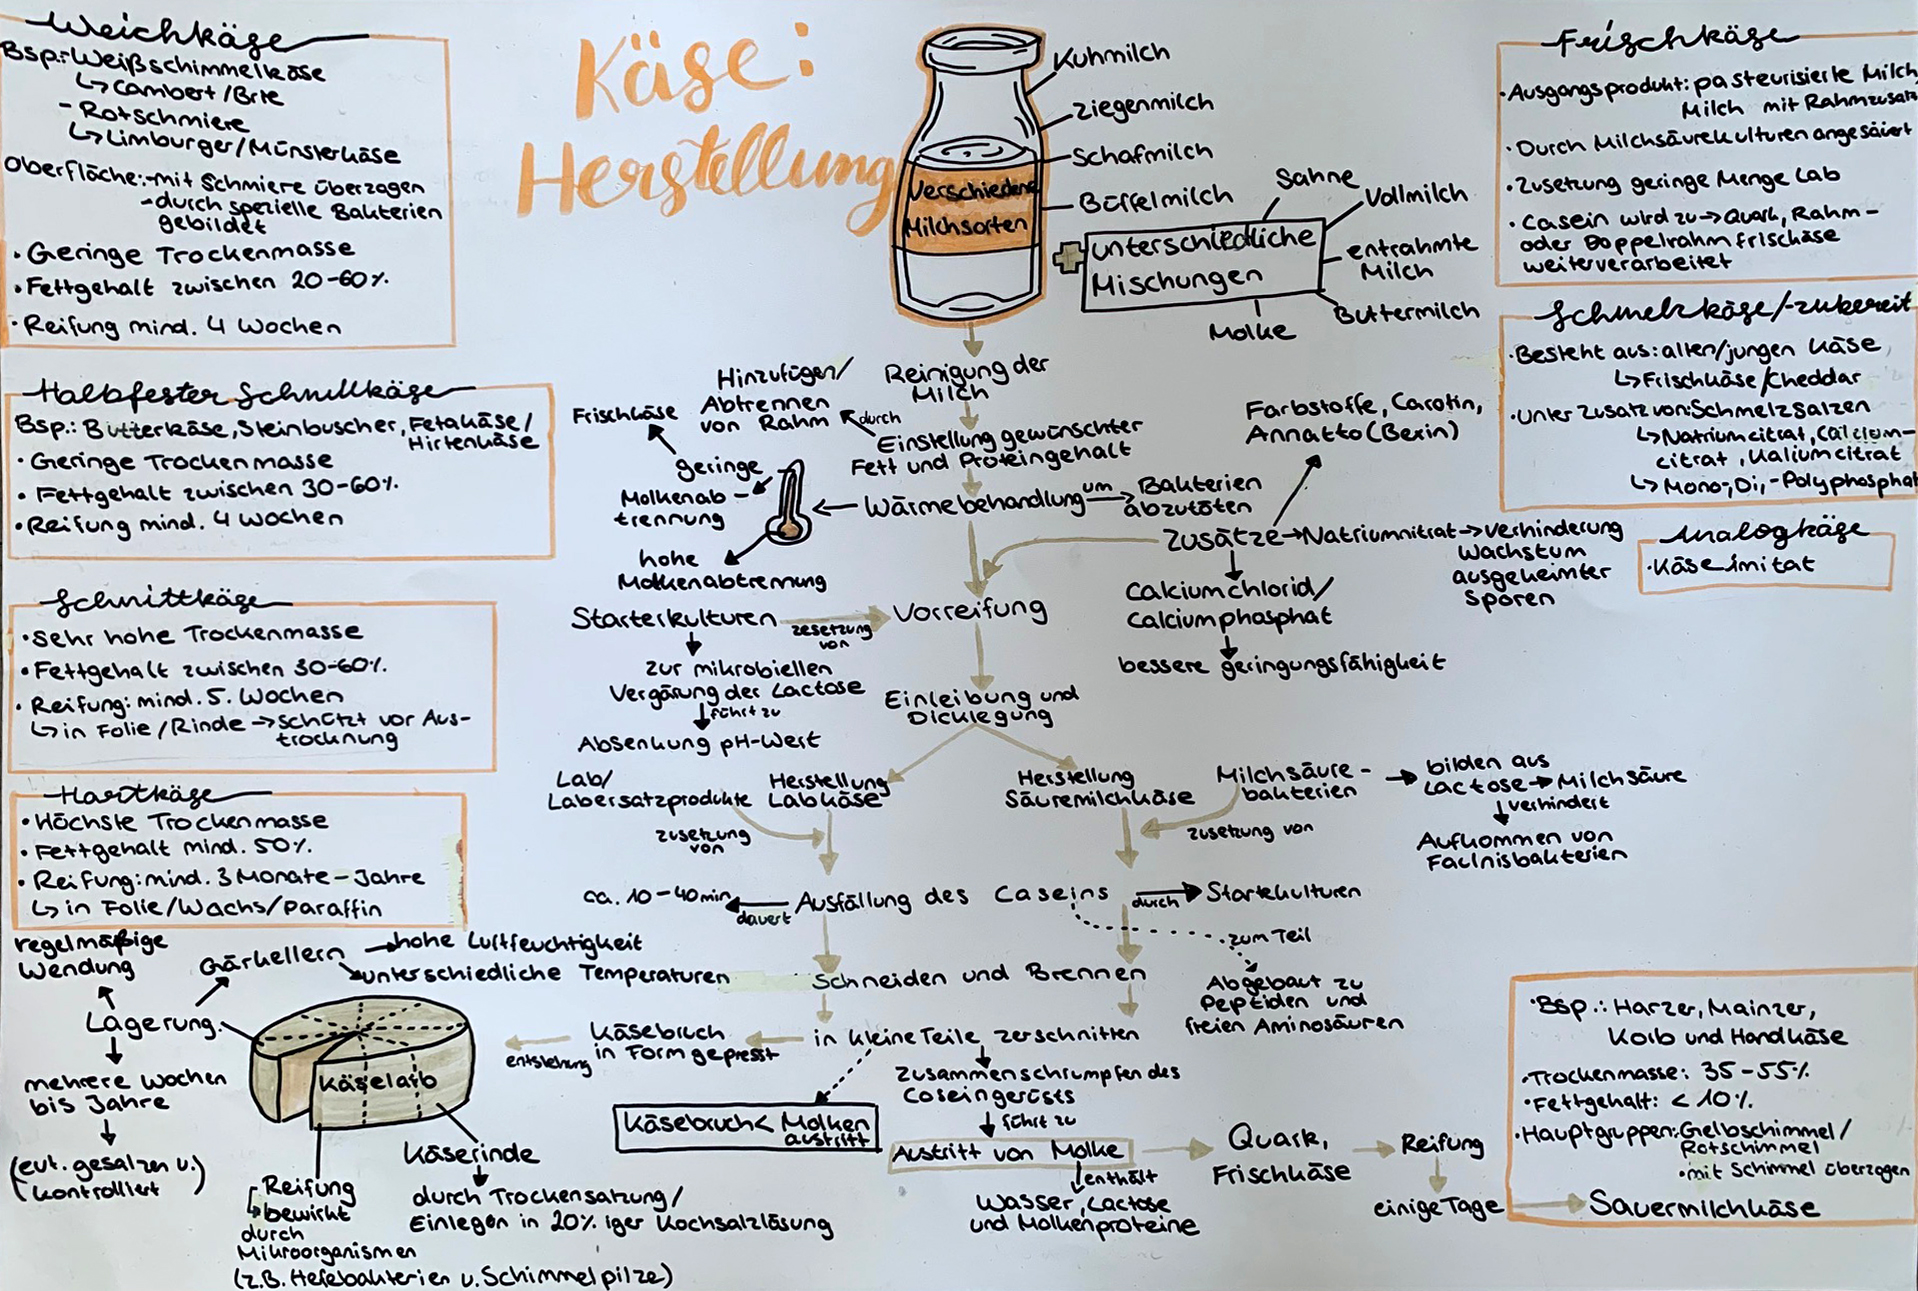 Käse:
Herstellung
Weichkäse
Bsp.: Weißschimmelkäse
↳ Cambert/Brie
- Rotschmiere
↳ Limburger/Münsterkäse
Oberfläche: - mit Schmiere überzogen
- durch spezielle Bakterien
gebildet
• Geringe Trockenmasse
• Fettgehalt zwischen 20-60%.
• Reifung mind. 4 Wochen
Halbfester Schnittkäse
Bsp.: Butterkäse, Steinbuscher, Fetakäse/
Hirtenkäse
• Geringe Trockenmasse
• Fettgehalt zwischen 30-60%.
• Reifung mind. 4 Wochen
Schnittkäse
• sehr hohe Trockenmasse
• Fettgehalt zwischen 30-60%.
• Reifung: mind. 5. Wochen
↳ in Folie/Rinde → schützt vor Aus-
trocknung
Hartkäse
• Höchste Trockenmasse
• Fettgehalt mind. 50%.
• Reifung: mind. 3 Monate - Jahre
↳ in Folie/Wachs/Paraffin
Verschiedene
Milchsorten
Kuhmilch
Ziegenmilch
Schafmilch
Büffelmilch
+
unterschiedliche
Mischungen
Sahne
Vollmilch
entrahmte
Milch
Buttermilch
Molke
Frischkäse
• Ausgangsprodukt: pasteurisierte Milch
Milch mit Rahmzusatz
• Durch Milchsäurekulturen angesäuert
• Zusetzung geringe Menge Lab
• Casein wird zu → Quark, Rahm-
oder Doppelrahmfrischäse
weiterverarbeitet
Schmelzkäse/-zubereit
• Besteht aus: alten/jungen Käse
↳ Frischkäse/Cheddar
• Unter Zusatz von: Schmelzsalzen
↳ Natriumcitrat, Calcium-
citrat, Kaliumcitrat
↳ Mono-, Di,-Polyphosphat
Analogkäse
• Käseimitat
Reinigung der
Milch
Einstellung gewünschter
Fett und Proteingehalt
durch
Hinzufügen/
Abtrennen
von Rahm
Wärmebehandlung
um
Bakterien
abzutöten
geringe
Molkenab-
trennung
Frischkäse
hohe
Molkenabtrennung
Zusätze → Natriumnitrat → Verhinderung
Wachstum
ausgekeimter
Sporen
Farbstoffe, Carotin,
Annatto (Bexin)
Calciumchlorid/
Calciumphosphat
bessere geringungsfähigkeit
Vorreifung
zesetzung
von
Starterkulturen
zur mikrobiellen
Vergärung der Lactose
führt zu
Absenkung pH-Wert
Einleibung und
Dicklegung
Herstellung
Labkäse
Lab/
Labersatzprodukte
zusetzung
von
Herstellung
Säuremilchkäse
Milchsäure-
bakterien
zusetzung von
bilden aus
Lactose → Milchsäure
verhindert
Aufkommen von
Fäulnisbakterien
Ausfällung des Caseins
dauert
ca. 10-40min
durch
Startekulturen
zum Teil
Abgebaut zu
Peptiden und
freien Aminosäuren
Schneiden und Brennen
in kleine Teile zerschnitten
Käsebruch
in Form gepresst
entstehung
Käsebruch < Molken
austritt
Zusammenschrumpfen des
Coseingerüsts
führt zu
Austritt von Molke
enthält
Wasser, Lactose
und Molkenproteine
Quark,
Frischkäse
Reifung
einige Tage
Sauermilchkäse
• Bsp.: Harzer, Mainzer,
Korb und Handkäse
• Trockenmasse: 35-55%.
• Fettgehalt: < 10%.
• Hauptgruppen: Gelbschimmel/
Rotschimmel
• mit Schimmel überzogen
Käselaib
Lagerung
regelmäßige
Wendung
Gärkellern
hohe Luftfeuchtigkeit
unterschiedliche Temperaturen
mehrere Wochen
bis Jahre
(evt. gesalzen u.
kontrolliert)
Reifung
bewirkt
durch
Mikroorganismen
(z.B. Hefebakterien u. Schimmelpilze)
Käserinde
durch Trockensatzung/
Einlegen in 20%iger Kochsalzlösung